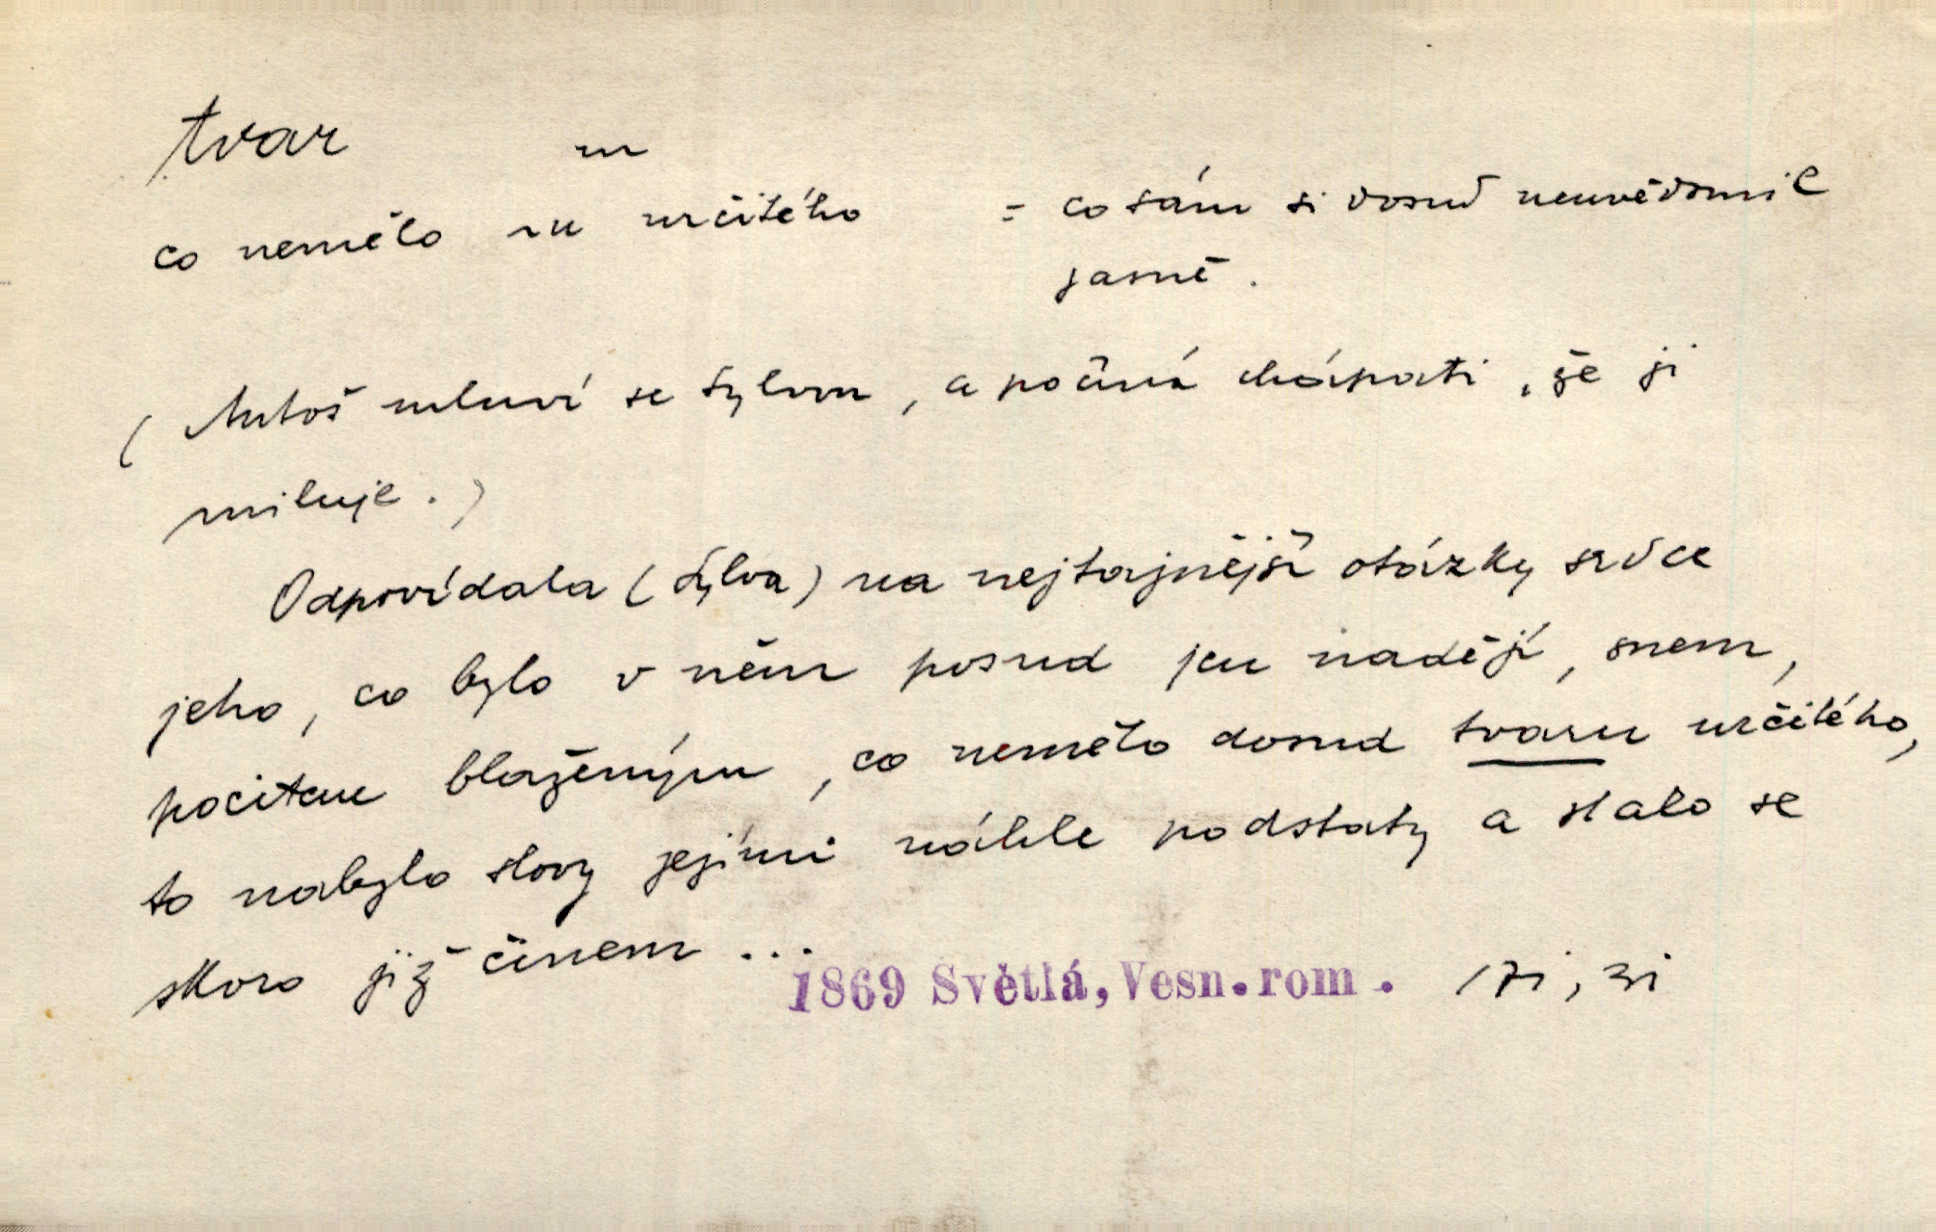 tvar m
co nemělo ~u určitého = co sám si dosud neuvědomil
jasně.
( Antoš mluví se Sylvou, a počíná chápati, že ji
miluje.)
Odpovídala (Sylva) na nejtajnější otázky srdce
jeho, co bylo v něm posud jen nadějí, snem,
pocitem blaženým, co nemělo dosud tvaru určitého,
to nabylo slovy jejími náhle podstaty a stalo se
skoro již činem ...
1869 Světlá, Vesn. rom.